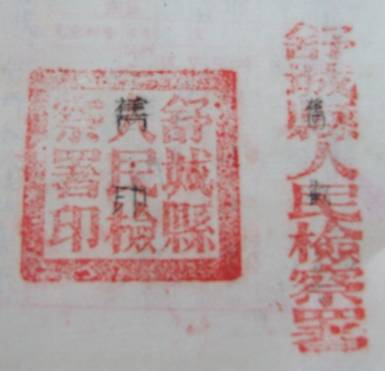 舒城縣人民檢察署
舒城縣
人民檢
察署印
印